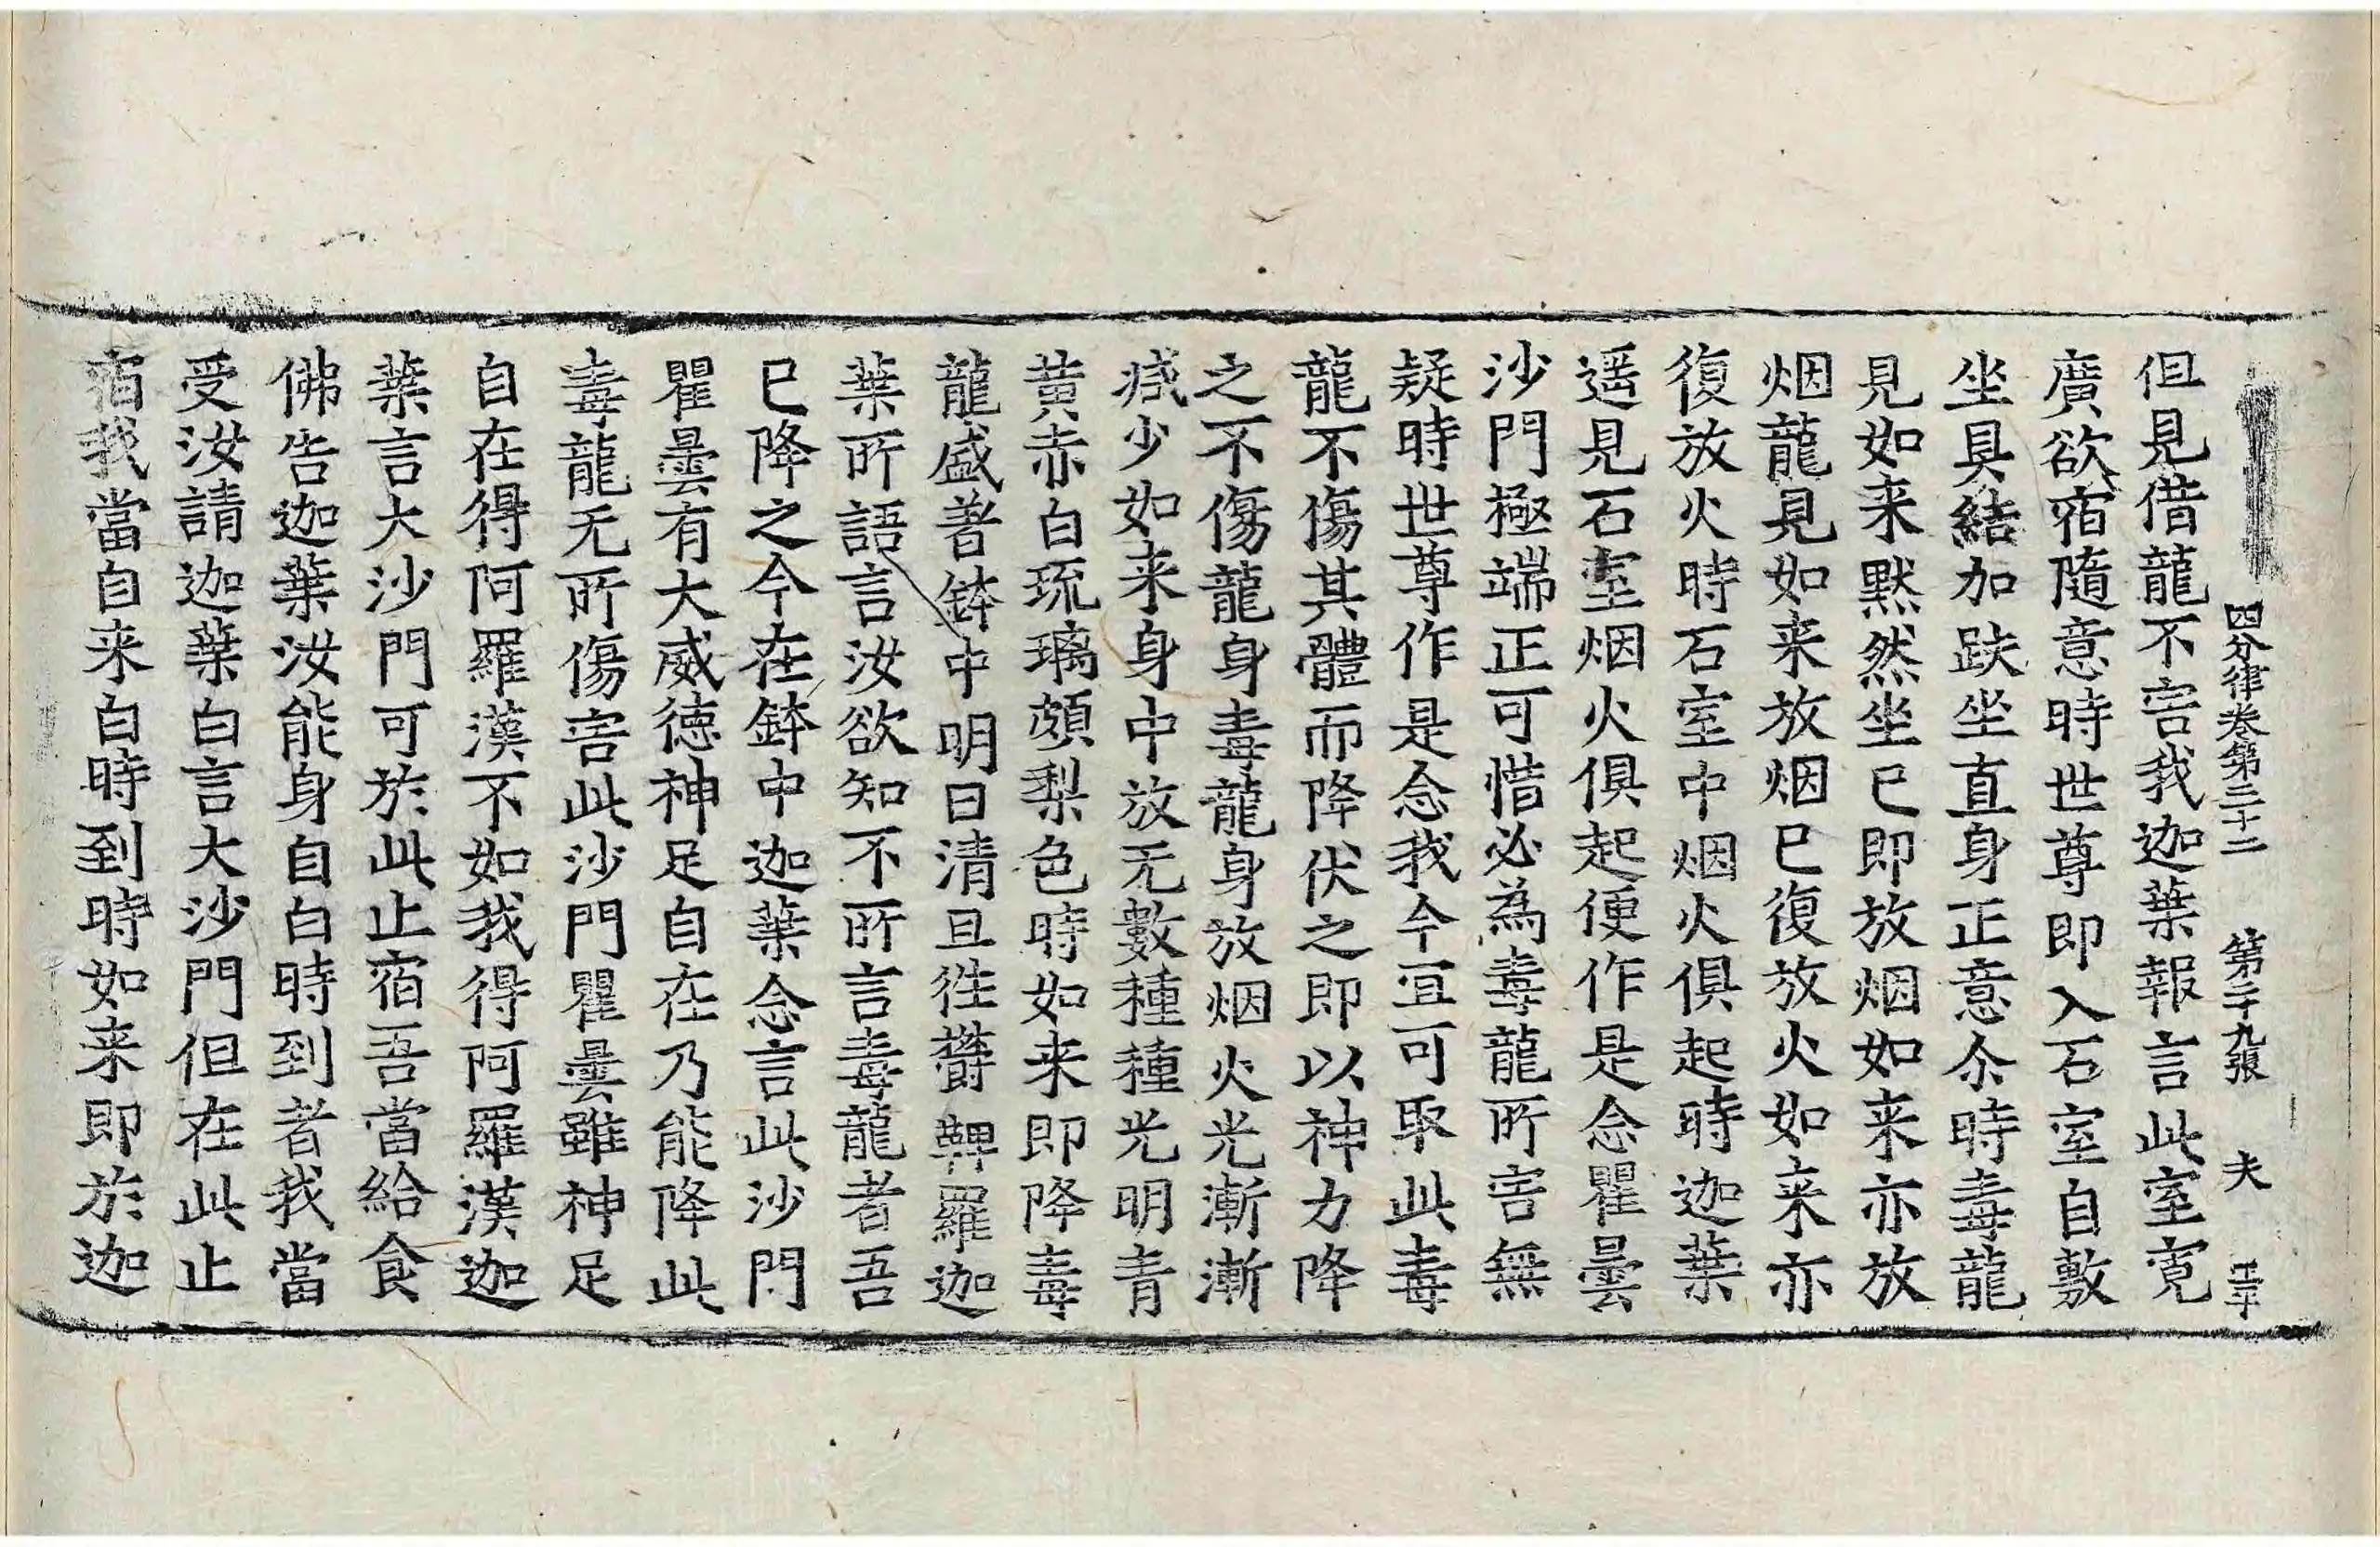 四分律卷第三十二 第二十九張 夫
但見借龍不害我迦葉報言此室寛
廣欲宿隨意時世尊即入石室自敷
坐具結加趺坐直身正意尒時毒龍
見如来黙然坐已即放烟如来亦放
烟龍見如来放烟已復放火如来亦
復放火時石室中烟火俱起時迦葉
遥見石室烟火俱起便作是念瞿曇
沙門極端正可惜必為毒龍所害無
疑時世尊作是念我今宜可取此毒
龍不傷其體而降伏之即以神力降
之不傷龍身毒龍身放烟火光漸漸
減少如来身中放无數種種光明青
黄赤白琉璃頗梨色時如来即降毒
龍盛著鉢中明日清旦往欝鞞羅迦
葉所語言汝欲知不所言毒龍者吾
已降之今在鉢中迦葉念言此沙門
瞿曇有大威徳神足自在乃能降此
毒龍无所傷害此沙門瞿曇雖神足
自在得阿羅漢不如我得阿羅漢迦
葉言大沙門可於此止宿吾當給食
佛告迦葉汝能身自白時到者我當
受汝請迦葉白言大沙門但在此止
宿我當自来白時到時如来即於迦